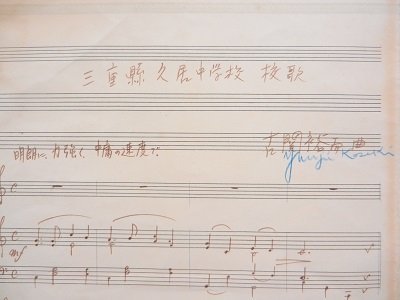 三重縣久居中学校 校歌
古関裕而 曲
明朗に、力強く 中庸の速度で
Yuji Koseki
mf